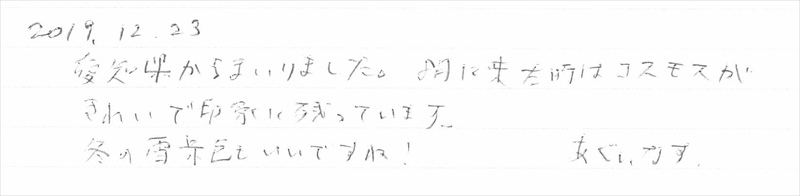 2019.12.23
愛知県からまいりました。前に来た時はコスモスが
きれいで印象に残っています。
冬の雪景色もいいですね!